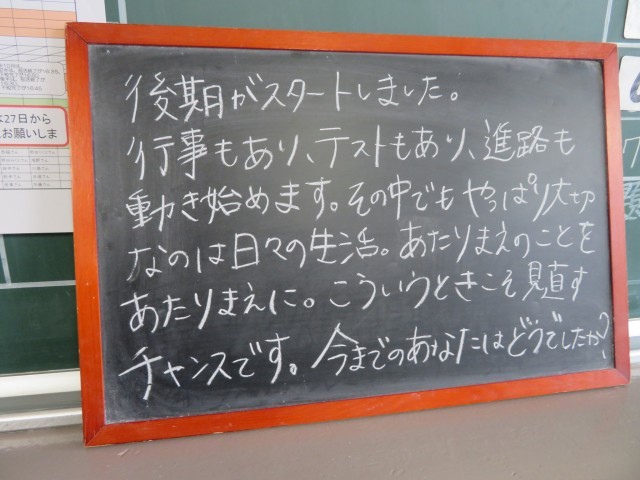 後期がスタートしました。
行事もあり、テストもあり、進路も
動き始めます。その中でもやっぱり大切
なのは日々の生活。あたりまえのことを
あたりまえに。こういうときこそ見直す
チャンスです。今までのあなたはどうでしたか?
27日から
お願いしま